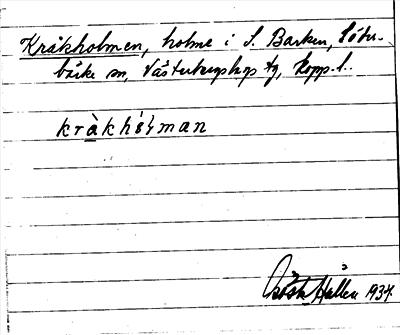 Kråkholmen, holme i S. Barken, Söder-
bärke sn, Västerbergslags tg, Kopp. l.
kràkhólman
Hallen 1934.